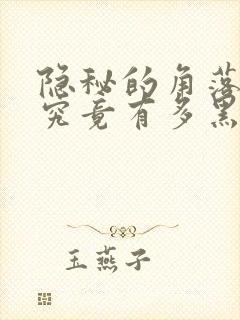 隐秘的角落
究竟有多黑
玉燕子